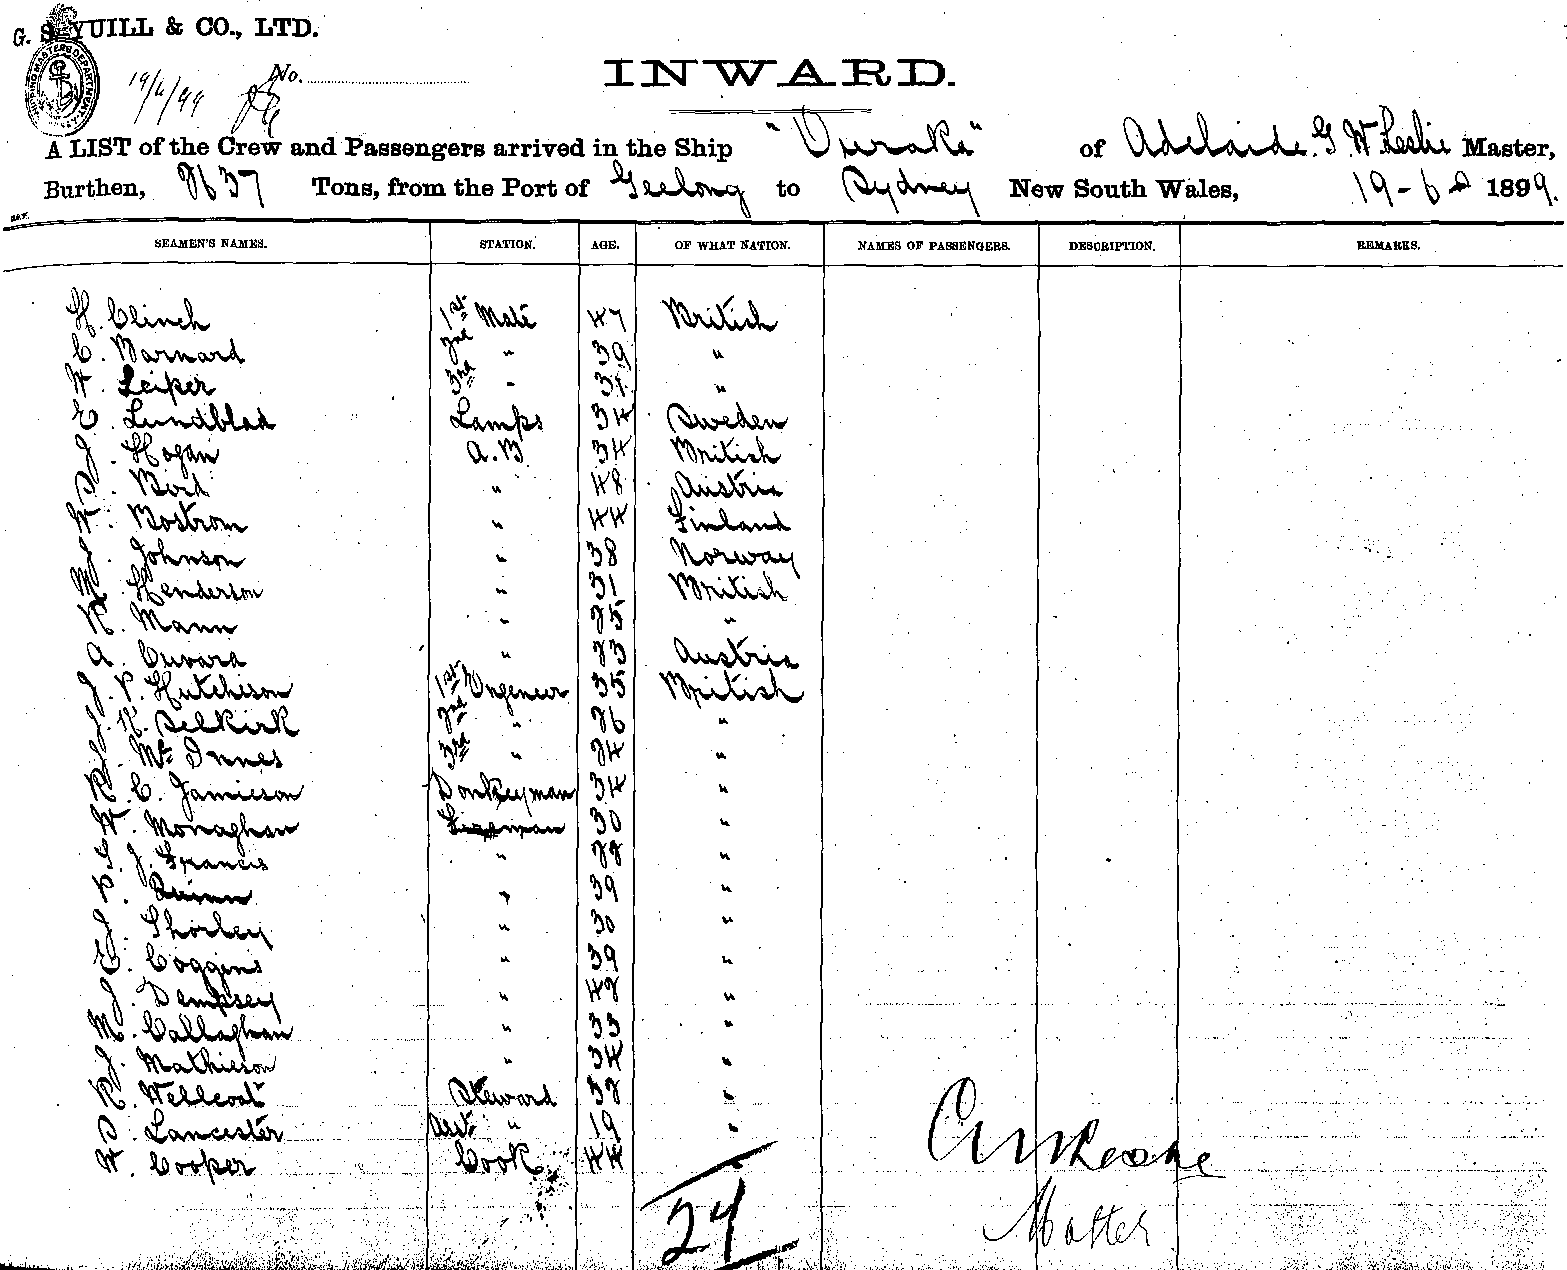 G. S. YUILL & CO., LTD.
19/6/99 No.
INWARD.
A LIST of the Crew and Passengers arrived in the Ship "Ouraka" of Adelaide. G. W. Leslie Master,
Burthen, 2637 Tons, from the Port of Geelong to Sydney New South Wales, 19-6- 1899.
SEAMEN'S NAMES. STATION. AGE. OF WHAT NATION. NAMES OF PASSENGERS. DESCRIPTION. REMARKS.
H. Clinch 1st Mate 47 British
C. Barnard 2nd " 39 "
W. Leiper 3rd " 31 "
E. Lundblad Lamps 34 Sweden
J. Hogan A.B. 34 British
S. Boid " 48 Austria
W. Bostrom " 44 Finland
J. Johnson " 38 Norway
M. Henderson " 31 British
R. Mann " 25 "
A. Cuvara " 23 Austria
J. P. Hutchison 1st Engeneer 35 British
J. R. Selkirk 2nd " 26 "
J. McInnes 3rd " 24 "
R. C. Jamieson Donkeyman 34 "
W. Monaghan Fireman 30 "
G. J. Francis " 22 "
P. Quinn " 39 "
J. Shorley " 30 "
E. Coggins " 39 "
J. Dempsey " 42 "
M. Callaghan " 33 "
J. Mathieson " 34 "
R. Wellcoat Steward 32 "
S. Lancester Asst " 19 "
W. Cooper Cook 44 "
24
Master